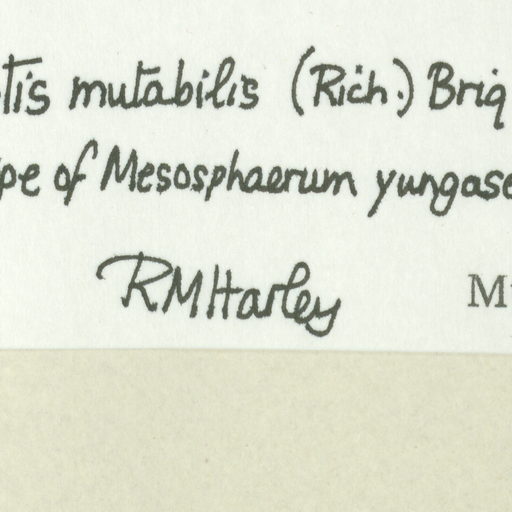 tis mutabilis (Rich.) Briq
pe of Mesosphaerum yungase
RMHarley M